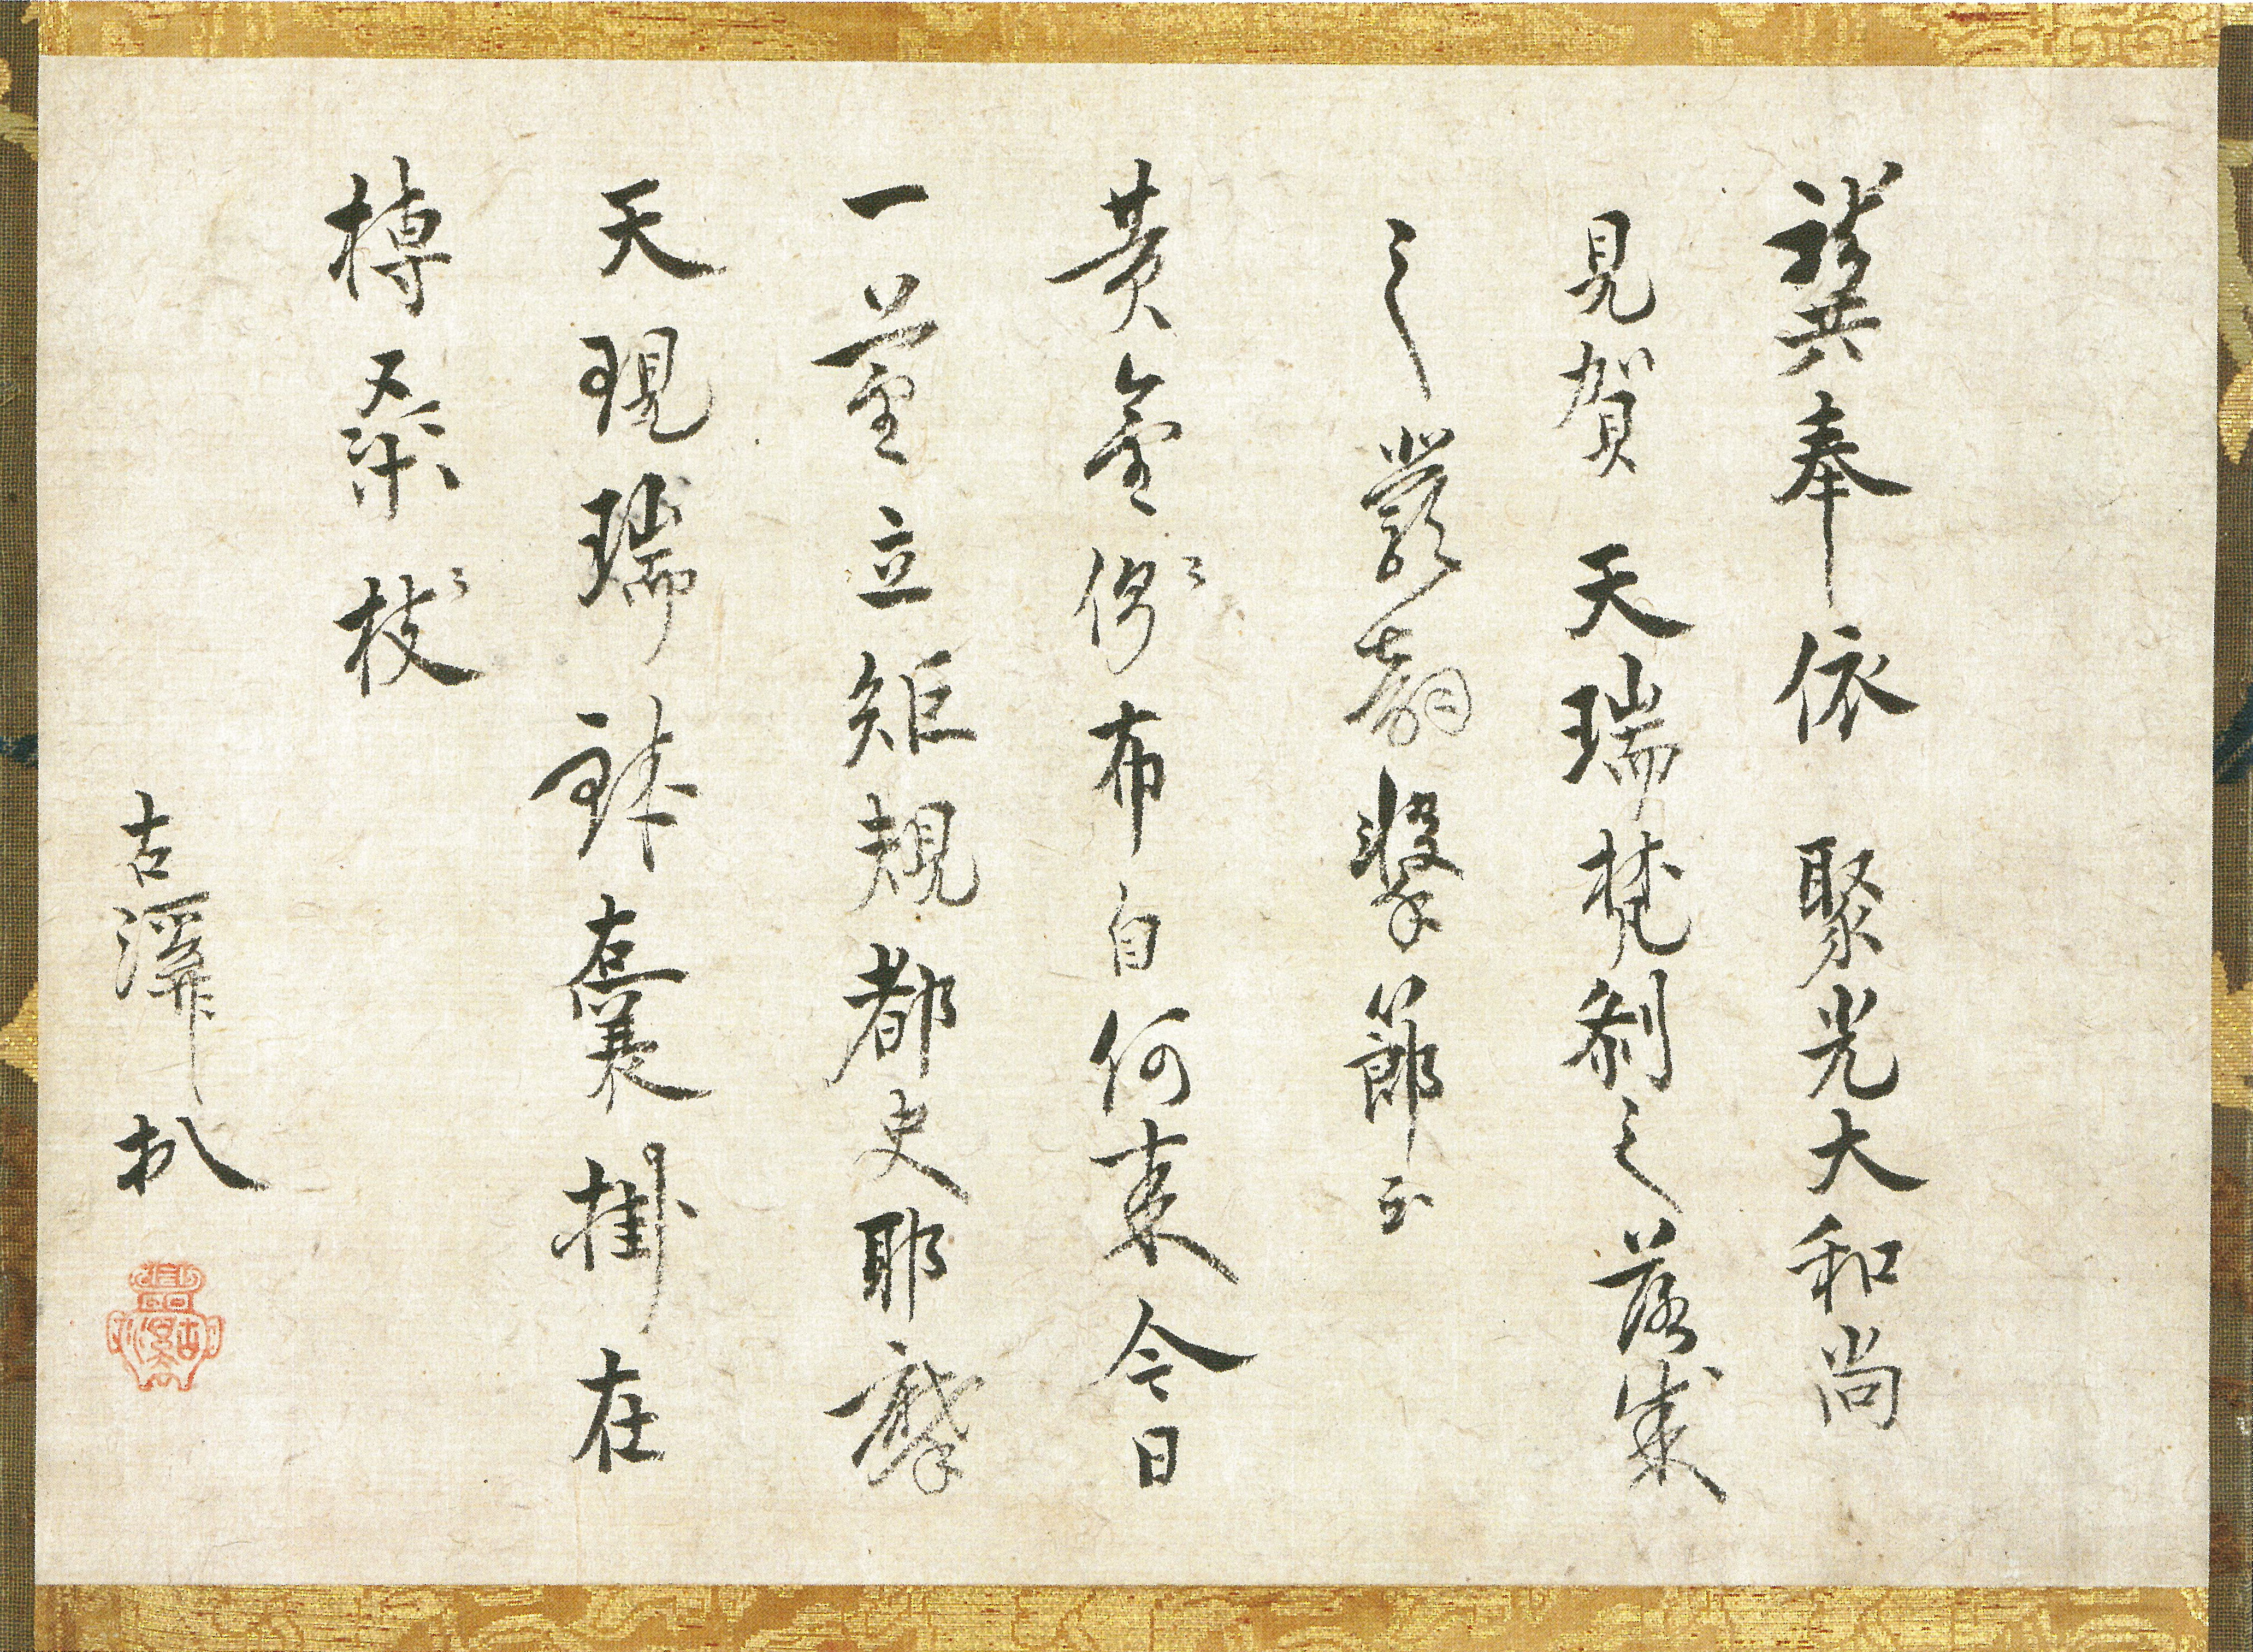 龔奉依 聚光大和尚
見賀 天瑞梵刹之落成
之嚴韵 擊節云
黄金側布自何來今日
一莖立矩規都史耶摩
天現瑞鉢囊掛在
榑桑枝
古溪 扒